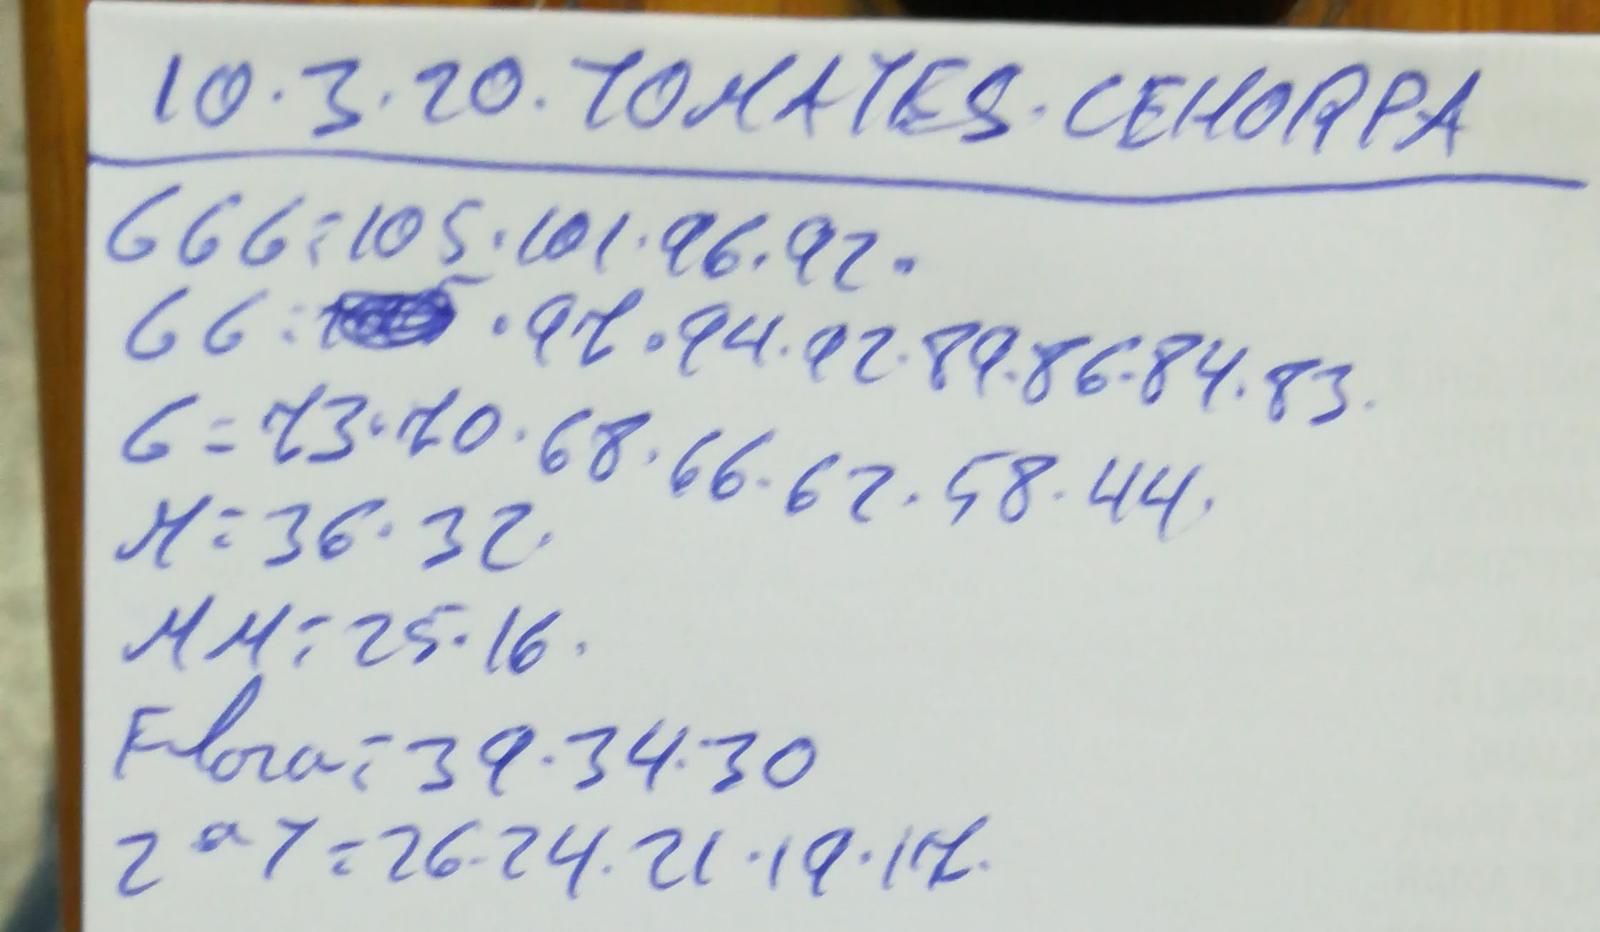 10.3.20.TOMATES.CEHORPA
GGG=105.101.96.92.
GG=.97.94.92.89.86.84.83.
G=73.70.68.66.62.58.44.
M=36.32.
MM=25.16.
Flora=39.34.30
2ª7=26.24.21.19.17.